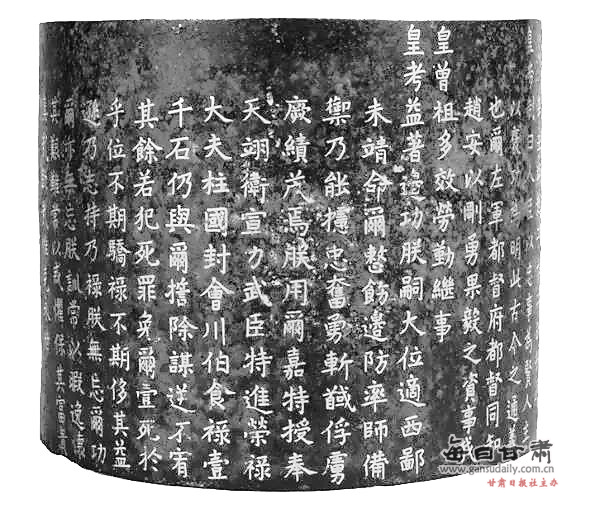 皇帝制曰人臣以忠事
以褒功 明此古今之通義
也爾左軍都督府都督同知
趙安以剛勇果毅之資事我
皇曾祖多效勞勤繼事
皇考益著邊功朕嗣大位適西鄙
未靖命爾整飭邊防率師備
禦乃能攄忠奮勇斬馘俘虜
厥績茂焉朕用爾嘉特授奉
天翊衛宣力武臣特進榮祿
大夫柱國封會川伯食祿壹
千石仍與爾誓除謀逆不宥
其餘若犯死罪免爾壹死於
乎位不期驕祿不期侈其益
遜乃志持乃祿朕無忘爾功
爾亦無忘朕訓常以暇逸懷
其艱難常以戒懼保其富貴
每日甘肃
www.gansudaily.com.cn
甘肃日报社主办